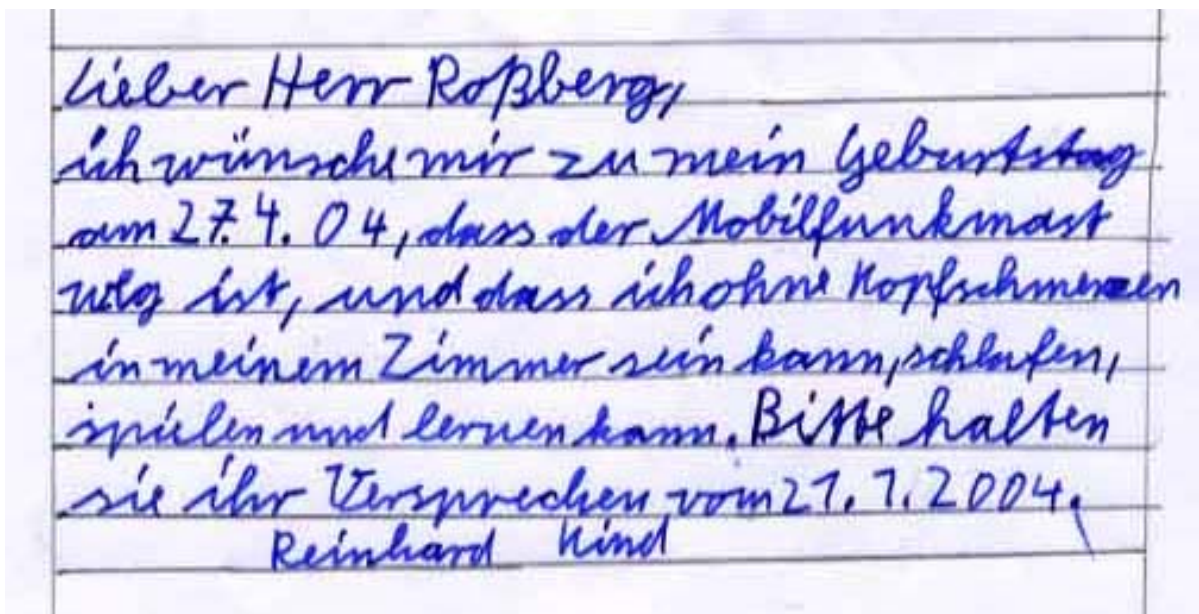 Lieber Herr Roßberg,
ich wünsche mir zu mein Geburtstag
am 27.4.04, dass der Mobilfunkmast
weg ist, und dass ich ohne Kopfschmerzen
in meinem Zimmer sein kann, schlafen,
spielen und lernen kann. Bitte halten
sie ihr Versprechen vom 21.1.2004.
Reinhard Kind